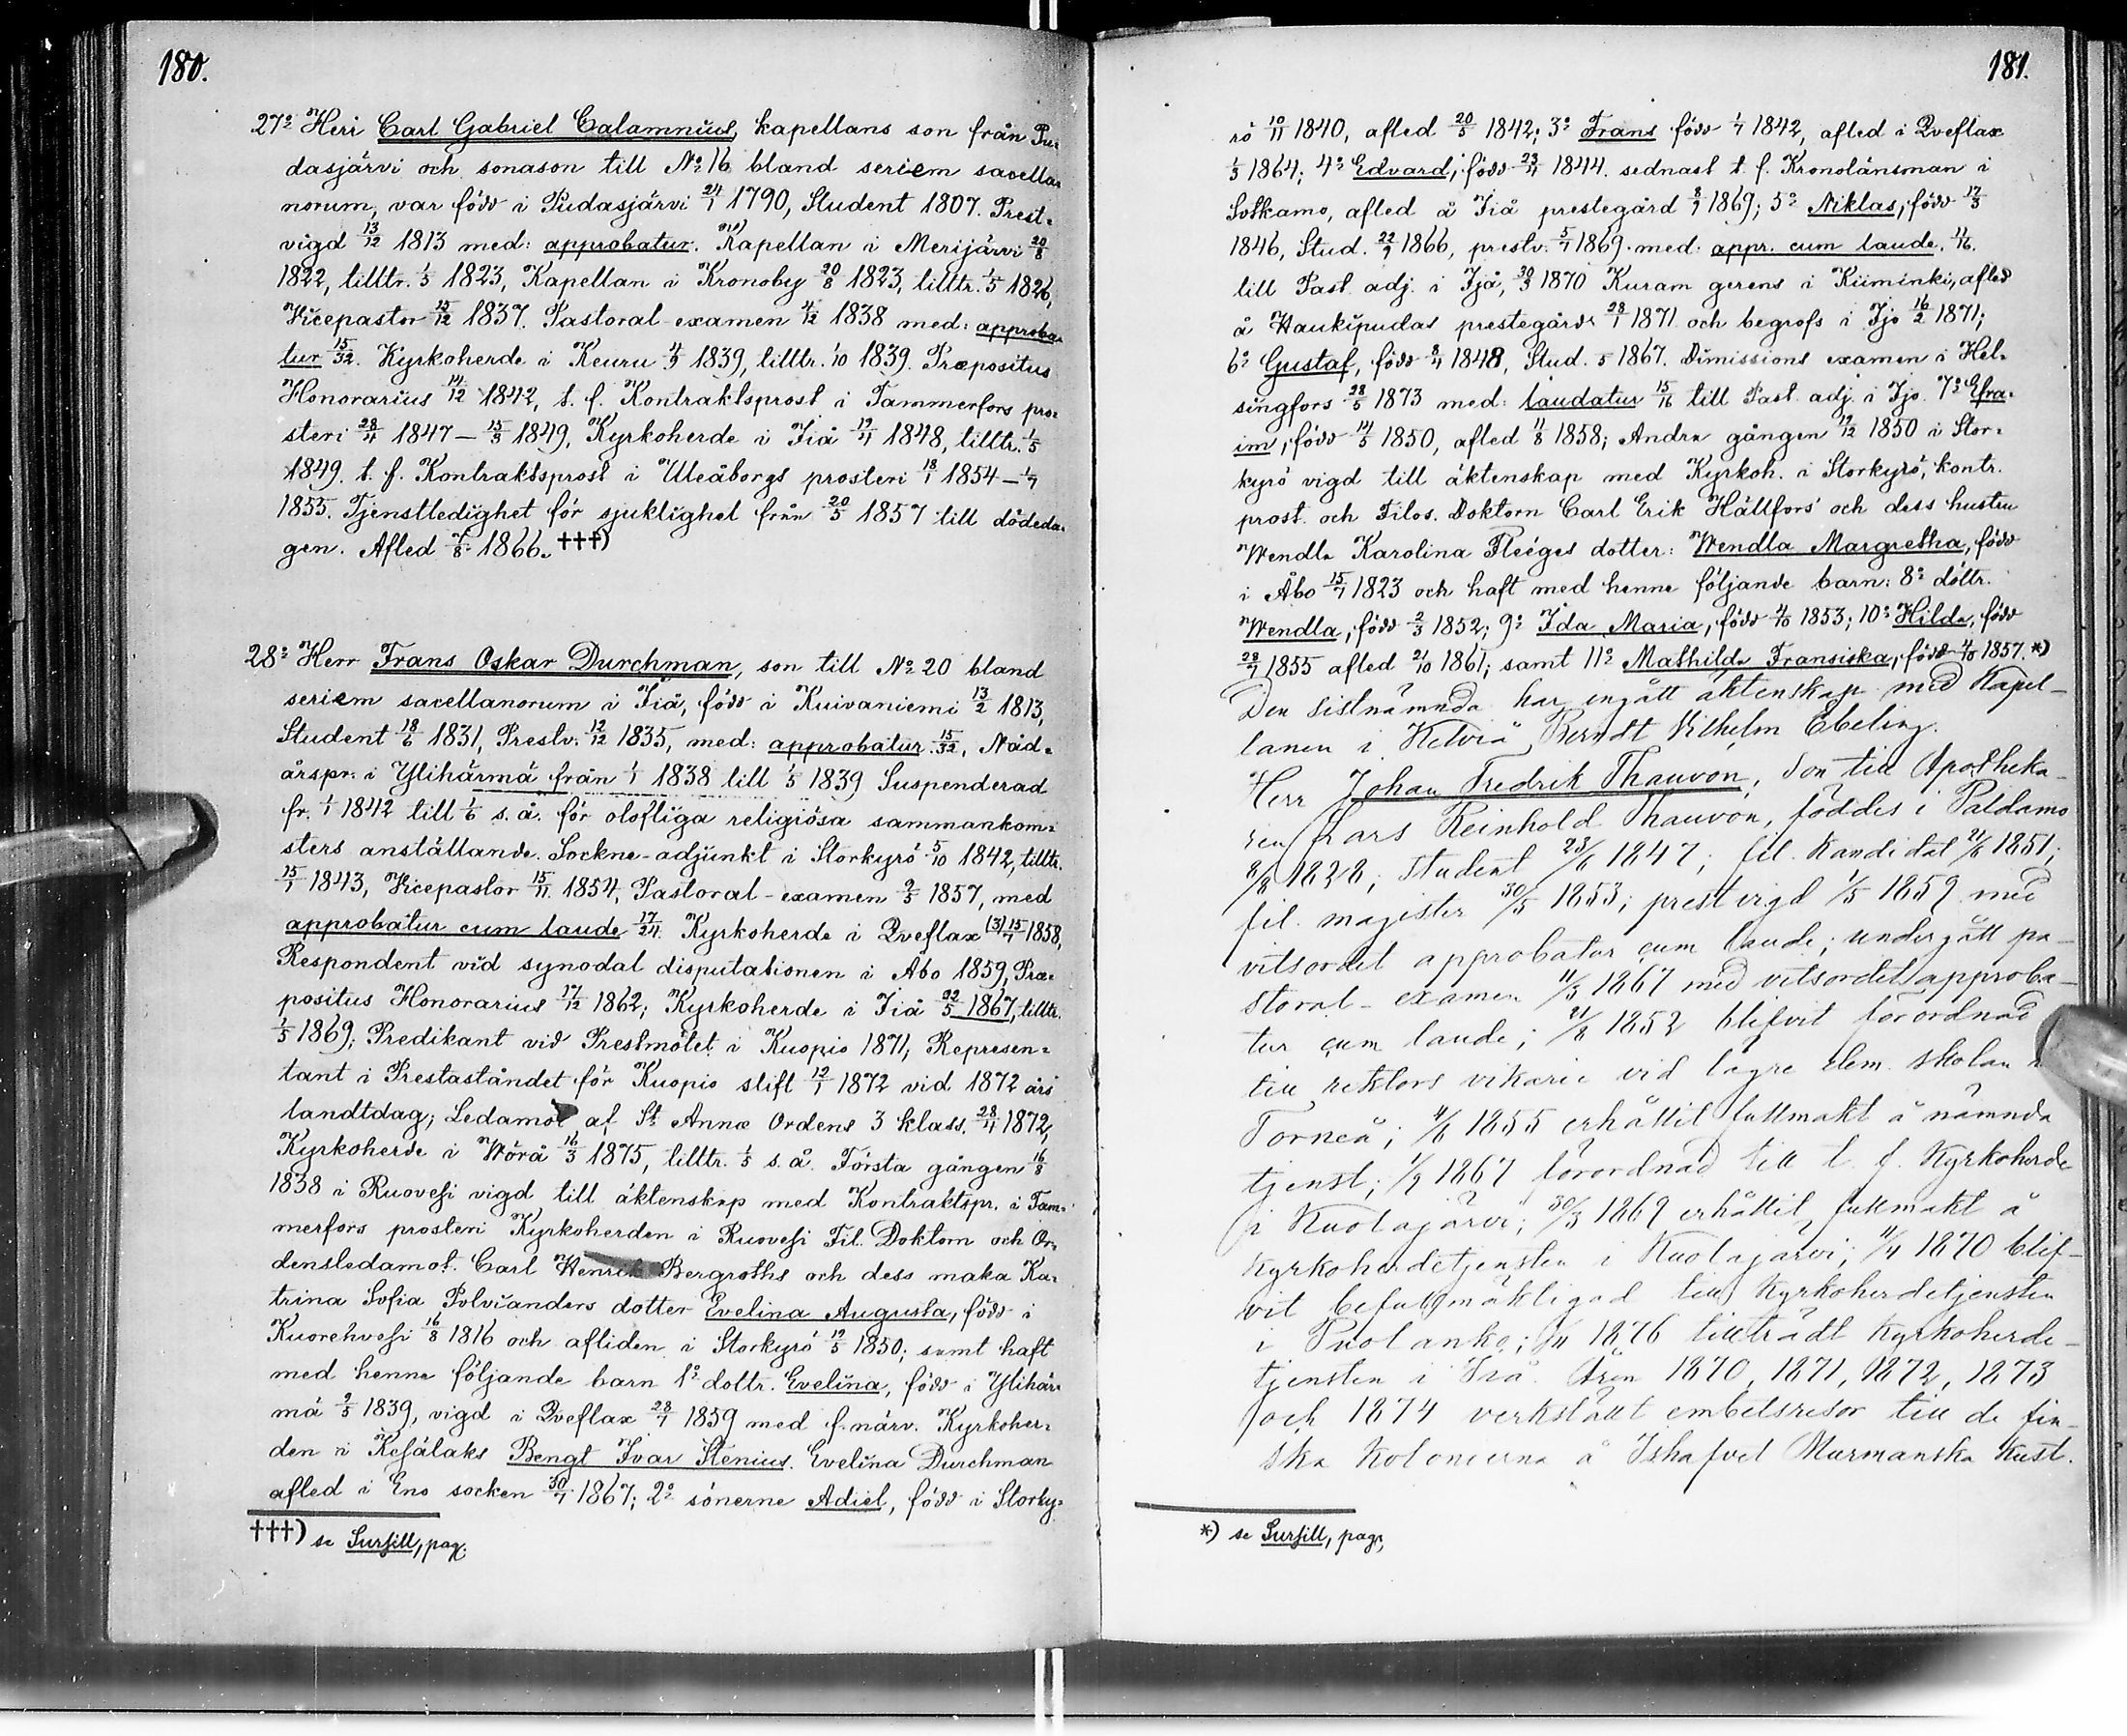 180.
27:o Herr Carl Gabriel Calamnius, kapellans son från Pu=
dasjärvi och sonason till No 16 bland seriem sacella=
norum, var född i Pudasjärvi 24/1 1790, Student 1807. Prest=
vigd 13/12 1813 med: approbatur. Kapellan i Merijärvi 20/8
1822, tilltr. 1/5 1823, Kapellan i Kronoby 20/8 1823, tilltr. 1/5 1826,
Vicepastor 15/12 1837. Pastoral-examen 4/12 1838 med: approba=
tur 15/32. Kyrkoherde i Keuru 4/9 1839, tilltr. 1/10 1839. Præpositus
Honorarius 14/12 1842, t. f. Kontraktsprost i Tammerfors pro=
steri 28/4 1847 – 15/3 1849, Kyrkoherde i Jiå 19/4 1848, tilltr. 1/5
1849. t. f. Kontraktsprost i Uleåborgs prosteri 18/1 1854 – 1/7
1855. Tjenstledighet för sjuklighet från 20/5 1857 till dödeda=
gen. Afled 7/8 1866. †††)
28:o Herr Frans Oskar Durchman, son till No 20 bland
seriem sacellanorum i Jiå, född i Kuivaniemi 13/2 1813,
Student 18/6 1831, Prestv. 12/12 1835, med: approbatur 15/32, Nåd=
årspr. i Ylihärmä från 1/1 1838 till 1/5 1839 Suspenderad
fr. 1/1 1842 till 1/6 s. å. för olofliga religiösa sammankom=
sters anställande. Sockne-adjunkt i Storkyrö 5/10 1842, tilltr.
15/1 1843, Vicepastor 15/11 1854, Pastoral-examen 9/5 1857, med
approbatur cum laude 17/24. Kyrkoherde i Qveflax (3) 15/7 1858,
Respondent vid synodal disputationen i Åbo 1859, Præ=
positus Honorarius 17/12 1862; Kyrkoherde i Jiå 22/5 1867, tilltr.
1/5 1869; Predikant vid Prestmötet i Kuopio 1871; Represen=
tant i Prestaståndet för Kuopio stift 12/1 1872 vid 1872 års
landtdag; Ledamot af St Annæ Ordens 3 klass. 28/4 1872,
Kyrkoherde i Wörå 16/3 1875, tilltr. 1/5 s. å. Första gången 16/8
1838 i Ruovesi vigd till äktenskap med Kontraktspr. i Tam=
merfors prosteri Kyrkoherden i Ruovesi Fil. Doktorn och Or=
densledamot. Carl Henrik Bergroths och dess maka Ka=
trina Sofia Polvianders dotter Evelina Augusta, född i
Kuorehvesi 16/8 1816 och afliden i Storkyrö 19/5 1850; samt haft
med henne följande barn 1:o dottr. Evelina, född i Ylihär=
mä 9/5 1839, vigd i Qveflax 28/7 1859 med f. närv. Kyrkoher=
den i Kesälaks Bengt Ivar Stenius. Evelina Durchman
afled i Eno socken 30/7 1867; 2:o sönerne Adiel, född i Storky=
†††) se Sursill, pag.
181.
rö 10/11 1840, afled 20/5 1842; 3:o Frans född 1/7 1842, afled i Qveflax
1/3 1864; 4:o Edvard, född 23/4 1844. sednast t. f. Kronolänsman i
Sotkamo, afled å Jiå prestegård 8/7 1869; 5:o Niklas, född 17/3
1846, Stud. 22/9 1866, prestv. 5/7 1869 med: appr. cum laude. 11/16.
till Past. adj. i Jjå, 30/3 1870 Kuram gerens i Kiiminki, afled
å Haukipudas prestegård 28/1 1871 och begrofs i Jjo 16/2 1871;
6:o Gustaf, född 8/4 1848, Stud. 5 1867. Dimissions examen i Hel=
singfors 28/5 1873 med: laudatur 15/16 till Past. adj. i Jjo. 7:o Efra=
im, född 14/5 1850, afled 11/8 1858; Andra gången 19/12 1850 i Stor=
kyrö vigd till äktenskap med Kyrkoh. i Storkyrö, kontr.
prost. och Filos. Doktorn Carl Erik Hällfors' och dess hustru
Wendla Karolina Fleéges dotter: Wendla Margretha, född
i Åbo 15/7 1823 och haft med henne följande barn: 8:o döttr.
Wendla, född 2/3 1852; 9:o Ida Maria, född 4/10 1853; 10:o Hilda, född
28/7 1855 afled 21/10 1861; samt 11:o Mathilda Fransiska, född 4/10 1857. *)
Den sistnämnda har ingått äktenskap med Kapel-
lanen i Kelviå Berndt Vilhelm Ebeling.
Herr Johan Fredrik Thauvon, Son till Apotheka-
ren Lars Reinhold Thauvon, föddes i Paldamo
8/8 1828; student 23/6 1847; fil. kandidat 21/6 1851;
fil. magister 30/5 1853; prestvigd 1/5 1859 med
vitsordet approbatur cum laude; undergått pa-
storal-examen 11/3 1867 med vitsordet approba-
tur cum laude; 21/8 1852 blifvit förordnad
till rektors vikarie vid lägre elem. skolan
Torneå; 4/6 1855 erhållit fullmakt å nämnda
tjenst; 1/9 1867 förordnad till t. f. Kyrkoherde
i Kuolajärvi; 30/3 1869 erhållit fullmakt å
Kyrkoherdetjensten i Kuolajärvi; 11/4 1870 blif-
vit befullmäktigad till Kyrkoherdetjensten
i Puolanko; 1876 tillträdt Kyrkoherde-
tjensten i Jiå. Åren 1870, 1871, 1872, 1873
och 1874 verkställt embetsresor till de fin-
ska kolonierna å Ishafvet Murmanska Kust.
*) se Sursill, pag.